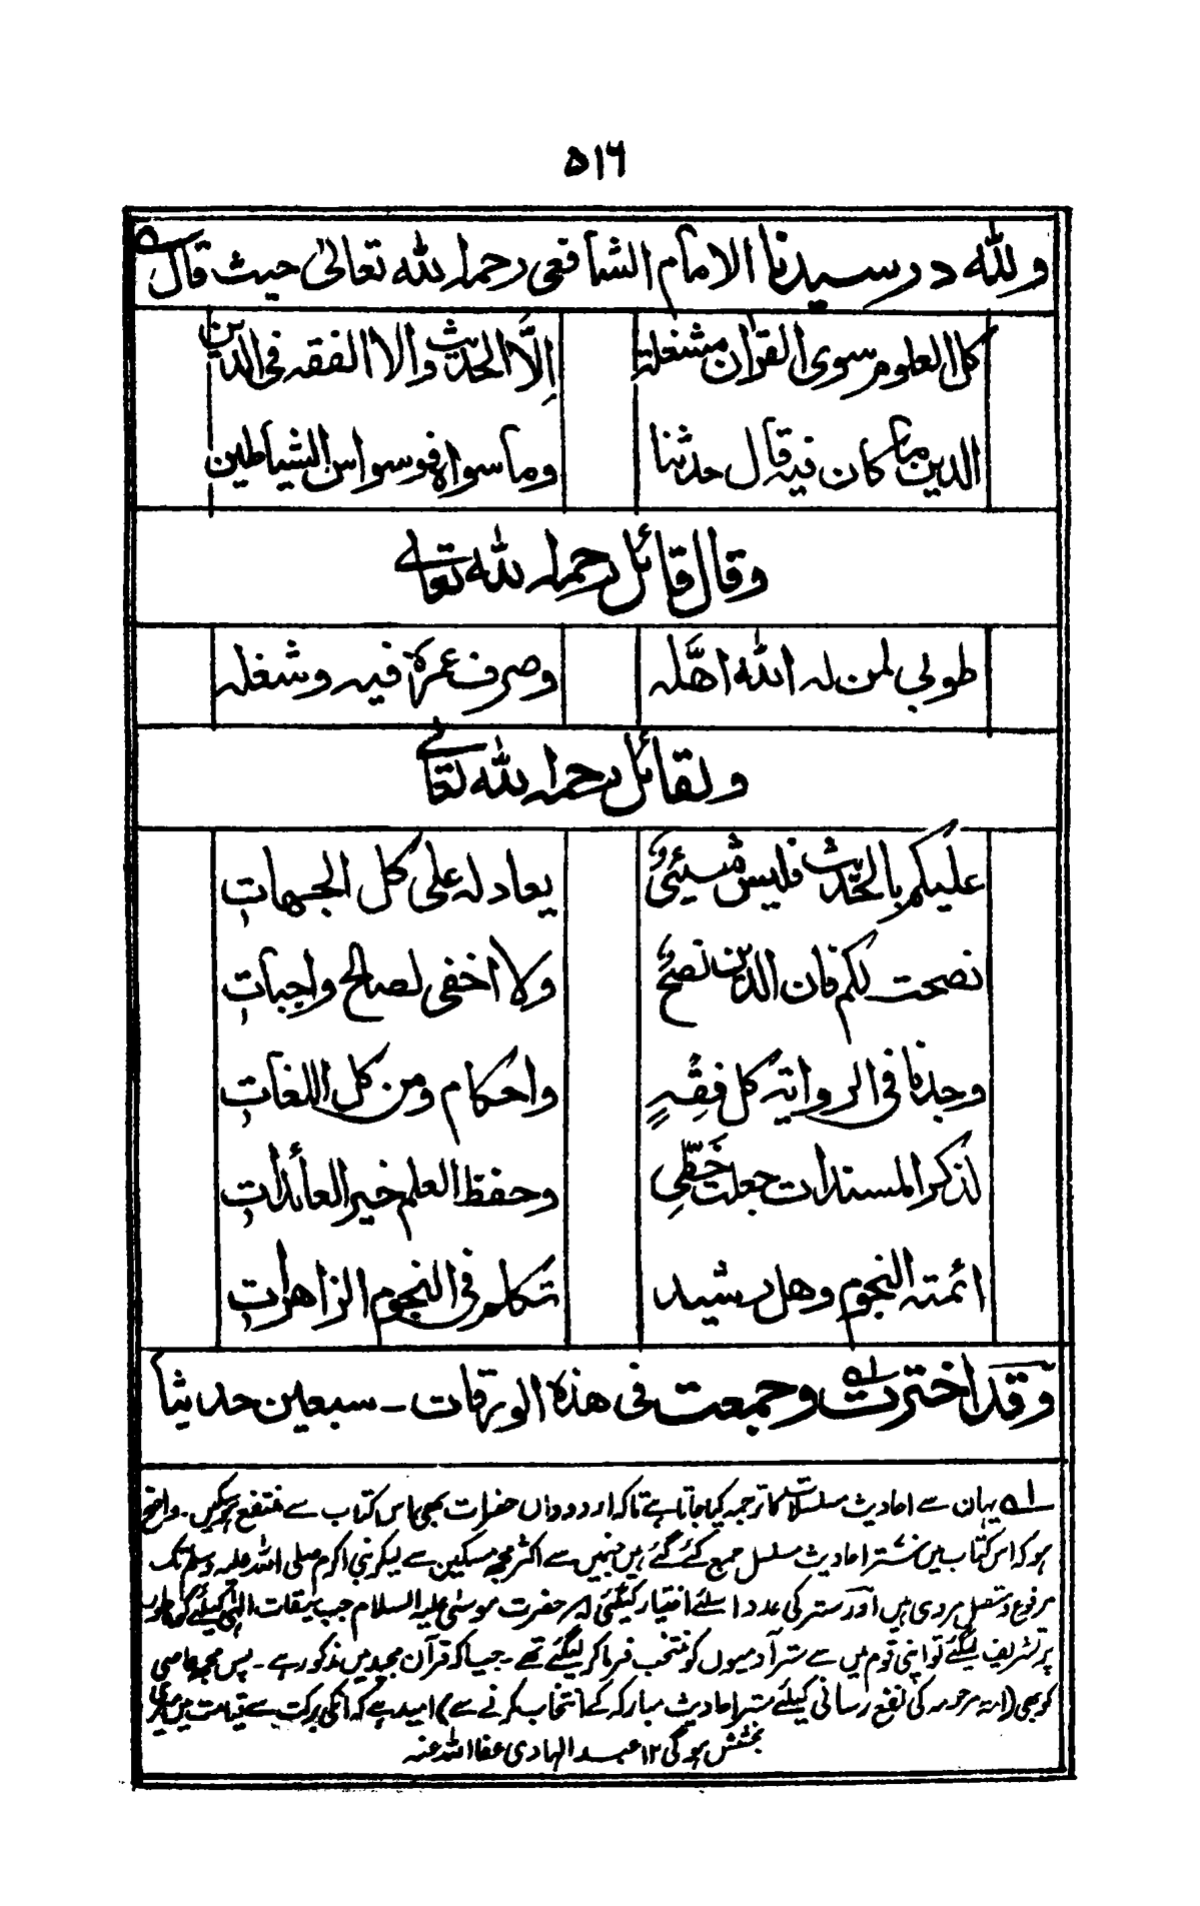 ٥١٦
ولله در سيدنا الامام الشافعى رحمه الله تعالىٰ حيث قال
كل العلوم سوى القران مشغلة
اِلَّا الحديث والا الفقه فى الدين
الدين ما كان فيه قال حدثنا
وما سواه فوسواس الشياطين
وقال قائل رحمه الله تعالے
طوبى لمن له الله اهَّله
وصرف عمره فيه وشغله
ولقائل رحمه الله تعالےٰ
عليكم بالحديث فليس شيئىٌ
يعادله على كل الجهاتِ
نصحت لكم فان الدين نصحٌ
ولا اخفى لصالح واجباتِ
وجدنا فى الرواية كل فِقْهٍ
واحكام ومن كل اللغاتِ
لذكر المسندات جعلت حَظِّى
وحفظ العلم خير العائداتِ
ائمته النجوم وهل رشيد
تكلم فى النجوم الزاهراتِ
وقد اخترت وجمعت فى هذه الورقات ـ سبعين حديثا
لہ یہان سے احادیث مسلسلات کا ترجمہ کیا جاتا ہے تاکہ اردو دواں حضرات بھی اس کتاب سے منتفع ہو سکیں ۔ واضح
ہو کہ اس کتاب میں ستر احادیث مسلسل جمع کئے گئے ہیں جنہیں سے اکثر مجھ مسکین سے لیکر نبی اکرم صلی اللہ علیہ وسلم تک
مرفوع و متصل مروی ہیں اور ستر کی عدد اسلئے اختیار کیگئی کہ حضرت موسٰی علیہ السلام جب میقات الٰہی کیلئے کوہ طور
پر تشریف لیگئے تو اپنی قوم میں سے ستر آدمیوں کو منتخب فرما کر لیگئے تھے ۔ جیسا کہ قرآن مجید میں مذکور ہے ۔ پس مجھ عاصی
کو بھی (امۃ مرحومہ کی نفع رسانی کیلئے ستر احادیث مبارکہ کے انتخاب کرنے سے) امید ہے کہ انکی برکت سے قیامت میں میری
بخشش ہو گی ۱۲ عبد الہادی عفا اللہ عنہ